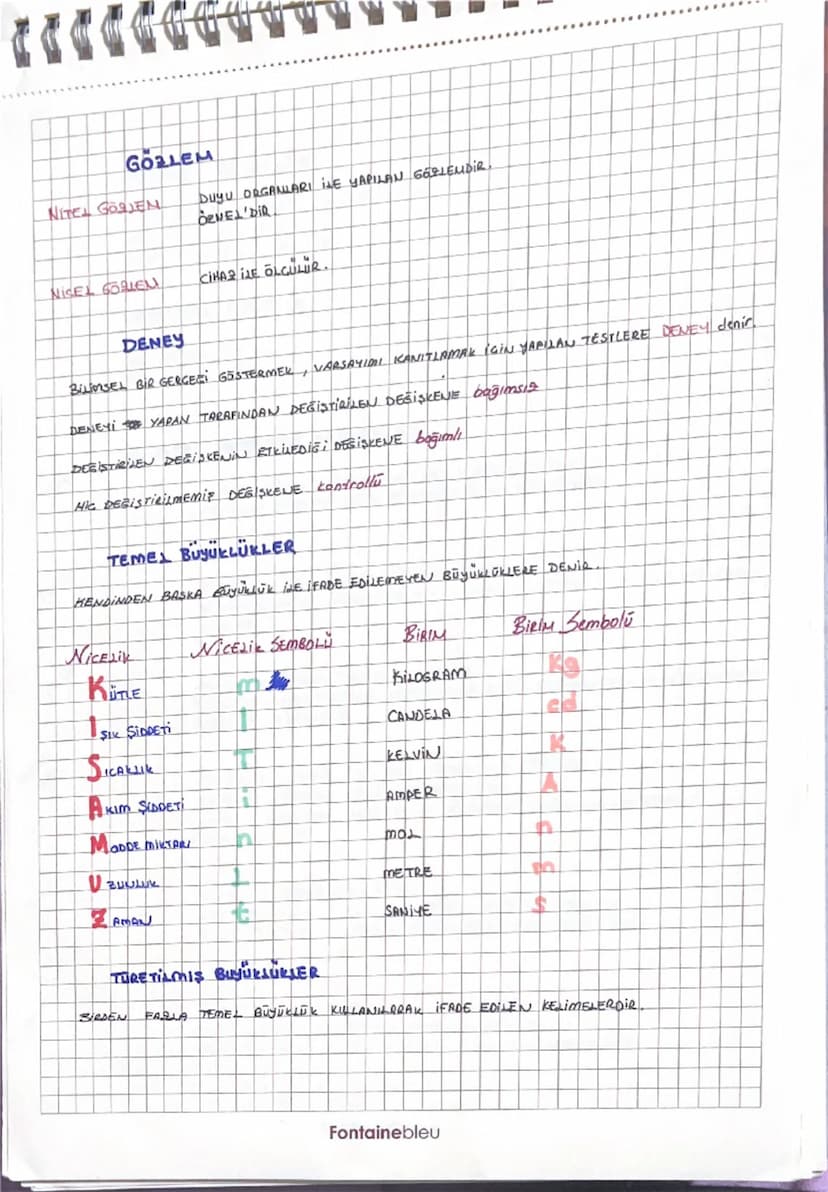 GÖZLEM
NİTEL GÖZLEM DUYU ORGANLARI İLE YAPILAN GÖZLEMDİR.
ÖZNEL'DİR
NİCEL GÖZLEM CİHAZ İLE ÖLÇÜLÜR.
DENEY
BİLİMSEL BİR GERÇEĞİ GÖSTERMEK, VARSAYIMI KANITLAMAK İÇİN YAPILAN TESTLERE DENEY denir.
DENEYİ YAPAN TARAFINDAN DEĞİŞTİRİLEN DEĞİŞKENE bağımsız
DEĞİŞTİRİLEN DEĞİŞKENİN ETKİLEDİĞİ DEĞİŞKENE bağımlı
HİÇ DEĞİŞTİRİLMEMİŞ DEĞİŞKENE kontrollü
TEMEL BÜYÜKLÜKLER
KENDİNDEN BAŞKA BÜYÜKLÜK İLE İFADE EDİLEMEYEN BÜYÜKLÜKLERE DENİR.
NİCELİK NİCELİK SEMBOLÜ BİRİM BİRİM Sembolü
KÜTLE m KİLOGRAM Kg
IŞIK ŞİDDETİ I CANDELA cd
SICAKLIK T KELVİN K
AKIM ŞİDDETİ i AMPER A
MADDE MİKTARI n MOL n
UZUNLUK L METRE m
ZAMAN t SANİYE s
TÜRETİLMİŞ BÜYÜKLÜKLER
BİRDEN FAZLA TEMEL BÜYÜKLÜK KULLANILARAK İFADE EDİLEN KELİMELERDİR.
Fontainebleu